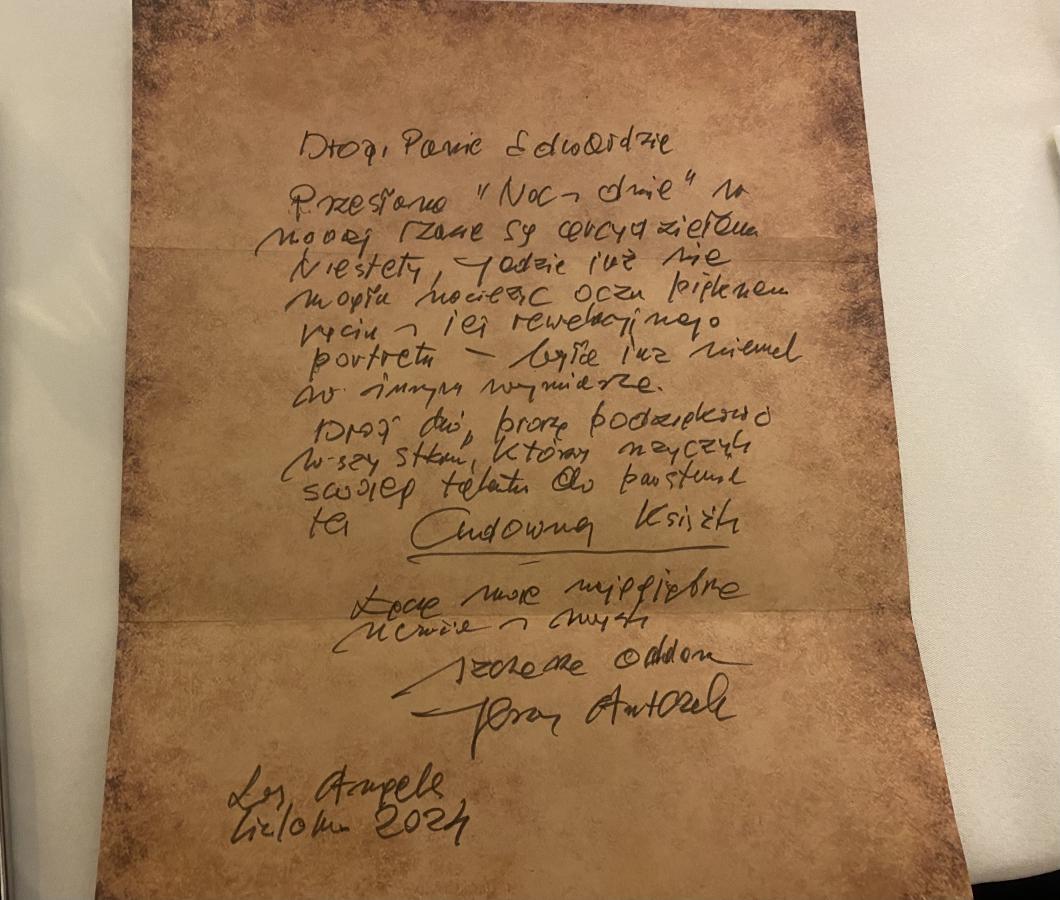 Drogi Panie Edwardzie
Przesłane "Noce i dnie" w
nowej szacie są arcydziełem
Niestety, Jadzia już nie
mogła nacieszyć oczu pięknem
i jej rewelacyjnego
portretu – była już niemal
w innym wymiarze.
Drogi proszę podziękować
wszystkim, którzy użyczyli
swojego talentu do powstania
tej Cudownej Książki
Łączę moje najgłębsze
uczucia i myśli
szczerze oddany
Jerzy Antczak
Los Angeles
2024